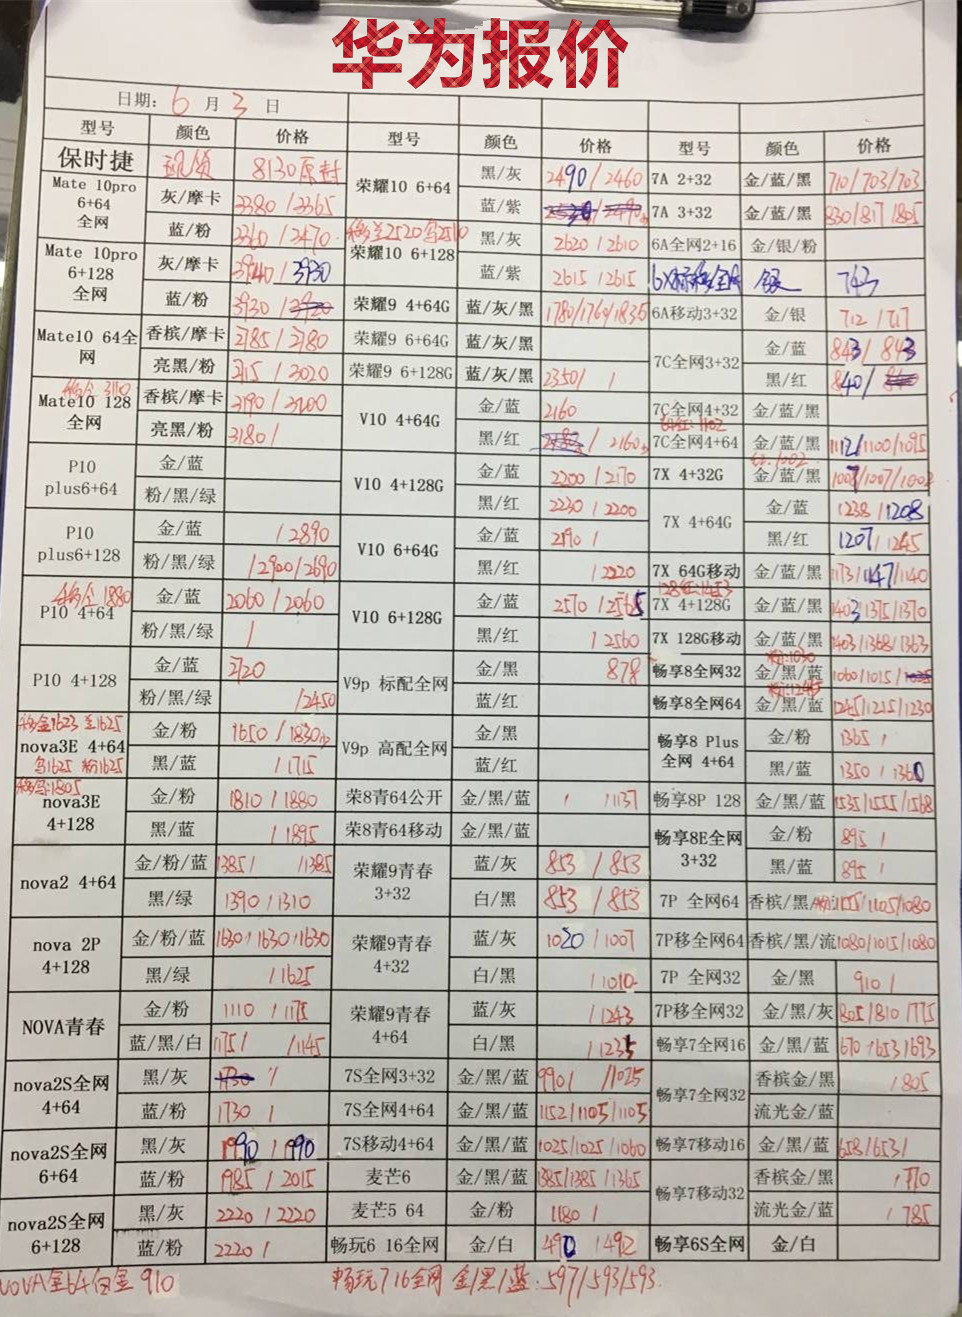 华为报价
日期: 6 月 3 日
型号 颜色 价格 型号 颜色 价格 型号 颜色 价格
保时捷 8130原封
Mate 10pro 6+64 全网 灰/摩卡 3380 / 3365
蓝/粉 3360 / 2470
Mate 10pro 6+128 全网 灰/摩卡 3940 / 3930
蓝/粉 3930
Mate10 64全网 香槟/摩卡 2785 / 2780
亮黑/粉
Mate10 128 全网 香槟/摩卡 3190 / 3200
亮黑/粉 3180 /
P10 plus6+64 金/蓝
粉/黑/绿
P10 plus6+128 金/蓝 / 2890
粉/黑/绿 / 2900 / 2690
P10 4+64 金/蓝 2060 / 2060
粉/黑/绿 /
P10 4+128 金/蓝
粉/黑/绿 / 2450
移金1623 兰1625
nova3E 4+64 金/粉 1650 / 1830
黑/蓝 / 1715
nova3E 4+128 金/粉 1810 / 1880
黑/蓝 / 1895
nova2 4+64 金/粉/蓝 1385 / / 1385
黑/绿 1390 / 1310
nova 2P 4+128 金/粉/蓝 1630 / 1630 / 1630
黑/绿 / 1625
NOVA青春 金/粉 1110 / 1175
蓝/黑/白 1175 / / 1145
nova2S全网 4+64 黑/灰
蓝/粉 1730 /
nova2S全网 6+64 黑/灰 1990 / 1990
蓝/粉 1985 / 2015
nova2S全网 6+128 黑/灰 2220 / 2220
蓝/粉 2220 /
荣耀10 6+64 黑/灰 2490 / 2460
蓝/紫
荣耀10 6+128 黑/灰 2620 / 2610
蓝/紫 2615 / 2615
荣耀9 4+64G 蓝/灰/黑 1780 / 1760 / 1835
荣耀9 6+64G 蓝/灰/黑
荣耀9 6+128G 蓝/灰/黑 2350 / /
V10 4+64G 金/蓝 2160
黑/红 / 2160
V10 4+128G 金/蓝 2200 / 2170
黑/红 2230 / 2200
V10 6+64G 金/蓝 2190 /
黑/红 / 2220
V10 6+128G 金/蓝 2570 / 2565
黑/红 / 2560
V9p 标配全网 金/黑 878
蓝/红
V9p 高配全网 金/黑
蓝/红
荣8青64公开 金/黑/蓝 / / 1137
荣8青64移动 金/黑/蓝
荣耀9青春 3+32 蓝/灰 853 / 853
白/黑 853 / 853
荣耀9青春 4+32 蓝/灰 1020 / 1007
白/黑 / 1010
荣耀9青春 4+64 蓝/灰 / 1243
白/黑 / 1235
7S全网3+32 金/黑/蓝 990 / / 1025
7S全网4+64 金/黑/蓝 1152 / 1105 / 1105
7S移动4+64 金/黑/蓝 1025 / 1025 / 1060
麦芒6 金/黑/蓝 1385 / 1385 / 1365
麦芒5 64 金/粉 1180 /
畅玩6 16全网 金/白 490 / 492
7A 2+32 金/蓝/黑 710 / 703 / 703
7A 3+32 金/蓝/黑 830 / 817 / 805
6A全网2+16 金/银/粉
银 743
6A移动3+32 金/银 712 / 717
7C全网3+32 金/蓝 843 / 843
黑/红 840 /
7C全网4+32 金/蓝/黑
7C全网4+64 金/蓝/黑 1112 / 1100 / 1095
7X 4+32G 金/蓝/黑 1007 / 1007 / 1002
7X 4+64G 金/蓝 1238 / 1208
黑/红 1207 / 1245
7X 64G移动 金/蓝/黑 1173 / 1147 / 1140
7X 4+128G 金/蓝/黑 1403 / 1375 / 1370
7X 128G移动 金/蓝/黑 1403 / 1368 / 1363
畅享8全网32 金/黑/蓝 1060 / 1015 /
畅享8全网64 金/黑/蓝 1245 / 1215 / 1230
畅享8 Plus 全网 4+64 金/粉 1365 /
黑/蓝 1350 / 1360
畅享8P 128 金/黑/蓝 1535 / 1555 / 1568
畅享8E全网 3+32 金/粉 895 /
黑/蓝 895 /
7P 全网64 香槟/黑/ 1155 / 1105 / 1080
7P移全网64 香槟/黑/流 1080 / 1015 / 1080
7P 全网32 金/黑 910 /
7P移全网32 金/黑/灰 805 / 810 / 775
畅享7全网16 金/黑/蓝 670 / 653 / 693
畅享7全网32 香槟金/黑 / 805
流光金/蓝
畅享7移动16 金/黑/蓝 658 / 653 /
畅享7移动32 香槟金/黑 / 770
流光金/蓝 / 785
畅享6S全网 金/白
NOVA全64白金 910
畅玩7 16全网 金/黑/蓝: 597/593/593